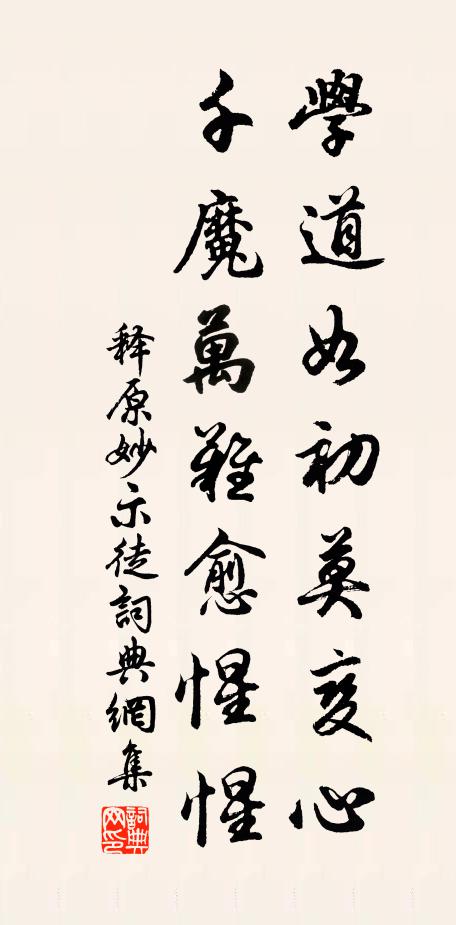 學道如初莫变心
千魔萬難愈惺惺
释原妙示徒詞典網集
詞典网印